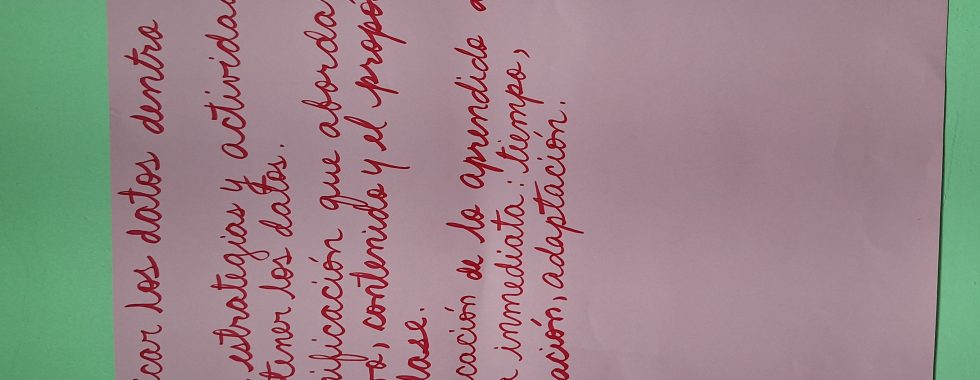 car los datos dentro
estrategias y activida
tener los datos.
nificación que aborda
o, contenido y el propó
lase.
cación de lo aprendido a
a inmediata: tiempo,
ación, adaptación.